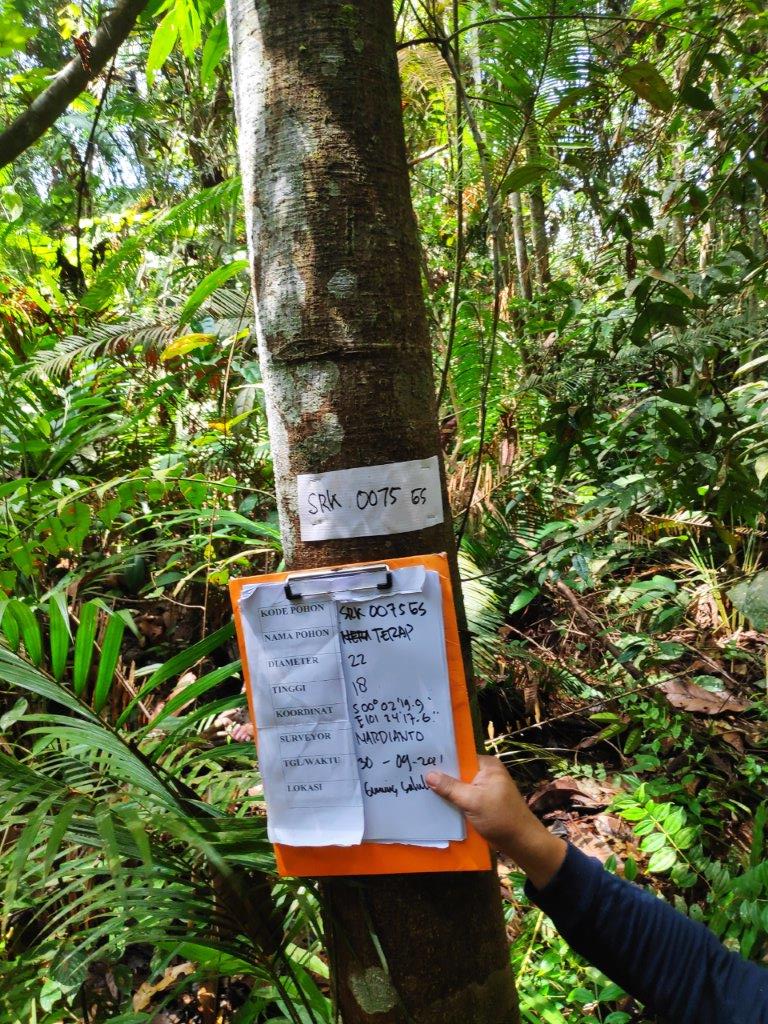 SRK 0075 ES
KODE POHON SRK 0075 ES
NAMA POHON TERAP
DIAMETER 22
TINGGI 18
KOORDINAT S 00° 02' 19.9"
E 101 24' 17.6"
SURVEYOR NARDIANTO
TGL/WAKTU 30 - 09 - 
LOKASI